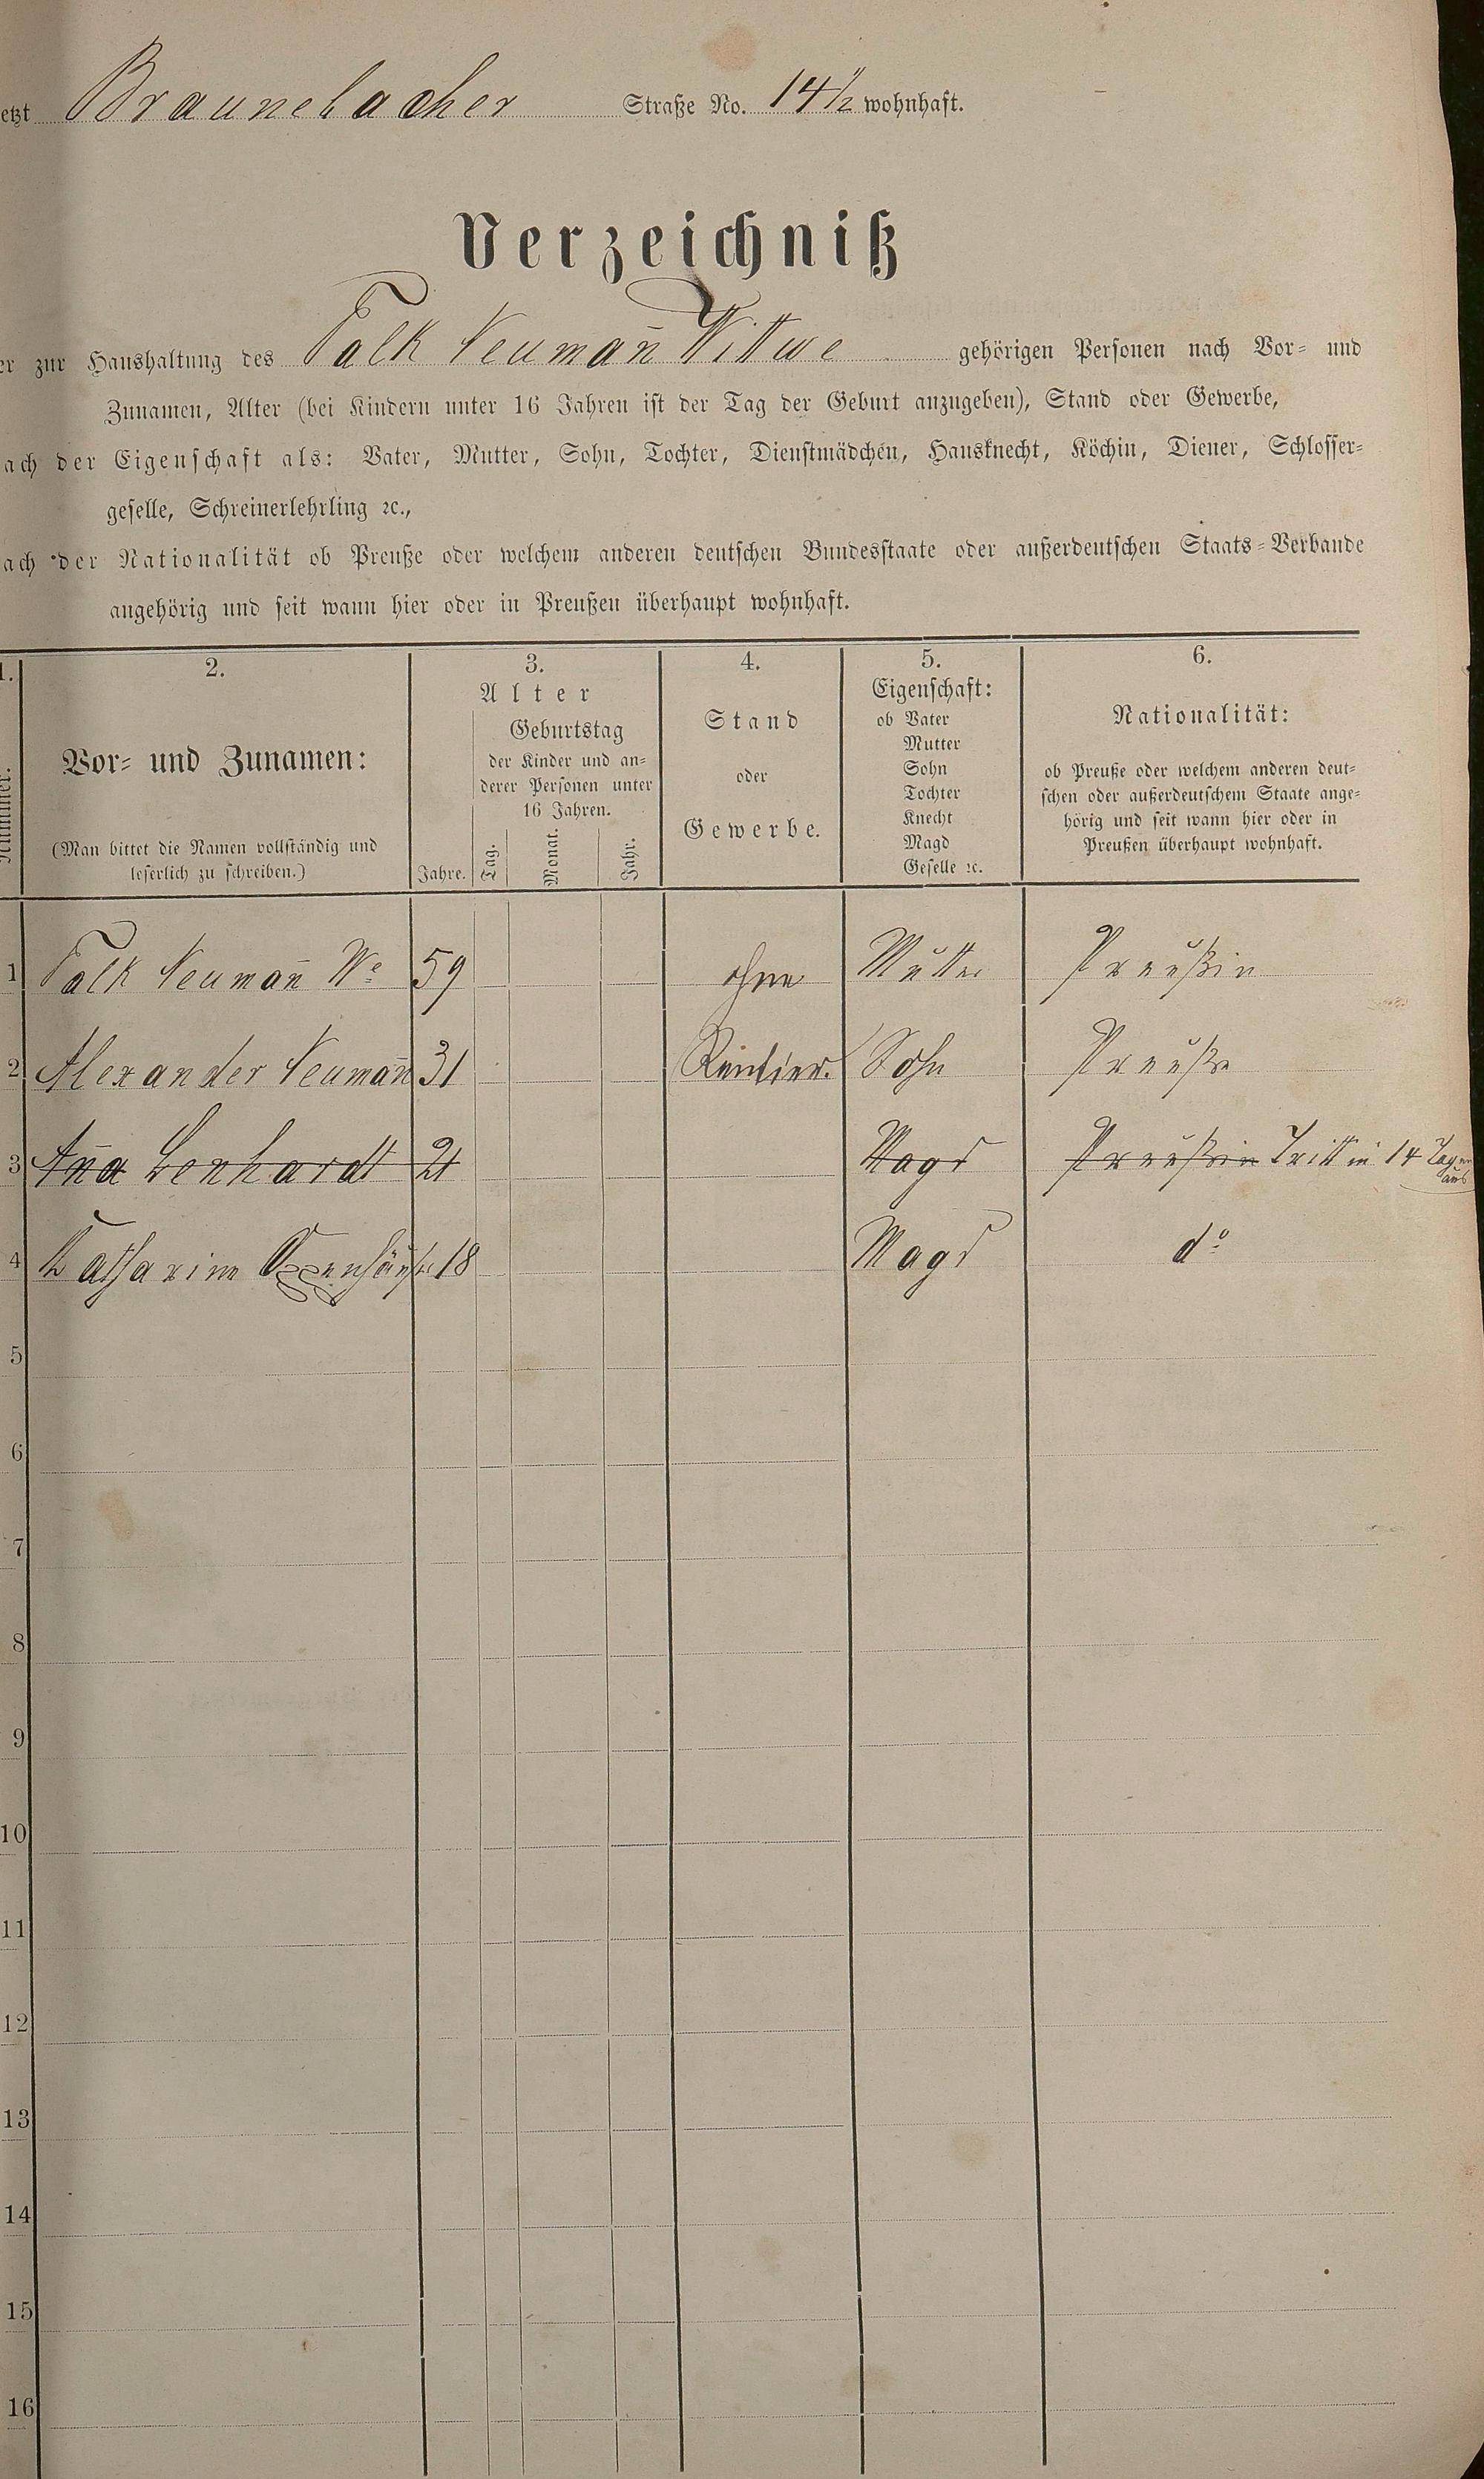 etzt Braunebacher Straße No. 14 1/2 wohnhaft.
Verzeichniß
er zur Haushaltung des Falk Neuman̄ Wittwe gehörigen Personen nach Vor- und
Zunamen, Alter (bei Kindern unter 16 Jahren ist der Tag der Geburt anzugeben), Stand oder Gewerbe,
ach der Eigenschaft als: Vater, Mutter, Sohn, Tochter, Dienstmädchen, Hausknecht, Köchin, Diener, Schlosser-
geselle, Schreinerlehrling ꝛc.,
ach der Nationalität ob Preuße oder welchem anderen deutschen Bundesstaate oder außerdeutschen Staats-Verbande
angehörig und seit wann hier oder in Preußen überhaupt wohnhaft.
1. 2. 3. 4. 5. 6.
Nummer.
Vor- und Zunamen:
(Man bittet die Namen vollständig und
leserlich zu schreiben.)
Alter
Jahre.
Geburtstag
der Kinder und an-
derer Personen unter
16 Jahren.
Tag. Monat. Jahr.
Stand
oder
Gewerbe.
Eigenschaft:
ob Vater
Mutter
Sohn
Tochter
Knecht
Magd
Geselle ꝛc.
Nationalität:
ob Preuße oder welchem anderen deut-
schen oder außerdeutschem Staate ange-
hörig und seit wann hier oder in
Preußen überhaupt wohnhaft.
1 Falk Neuman̄ We 59 ohne Mutter Preußin
2 Alexander Neuman̄ 31 Rentier. Sohn Preuße
3 An̄a Lenhardt 21 Magd Preußin Tritt in 14 Tagen
aus
4 Katharine 18 Magd do
5
6
7
8
9
10
11
12
13
14
15
16